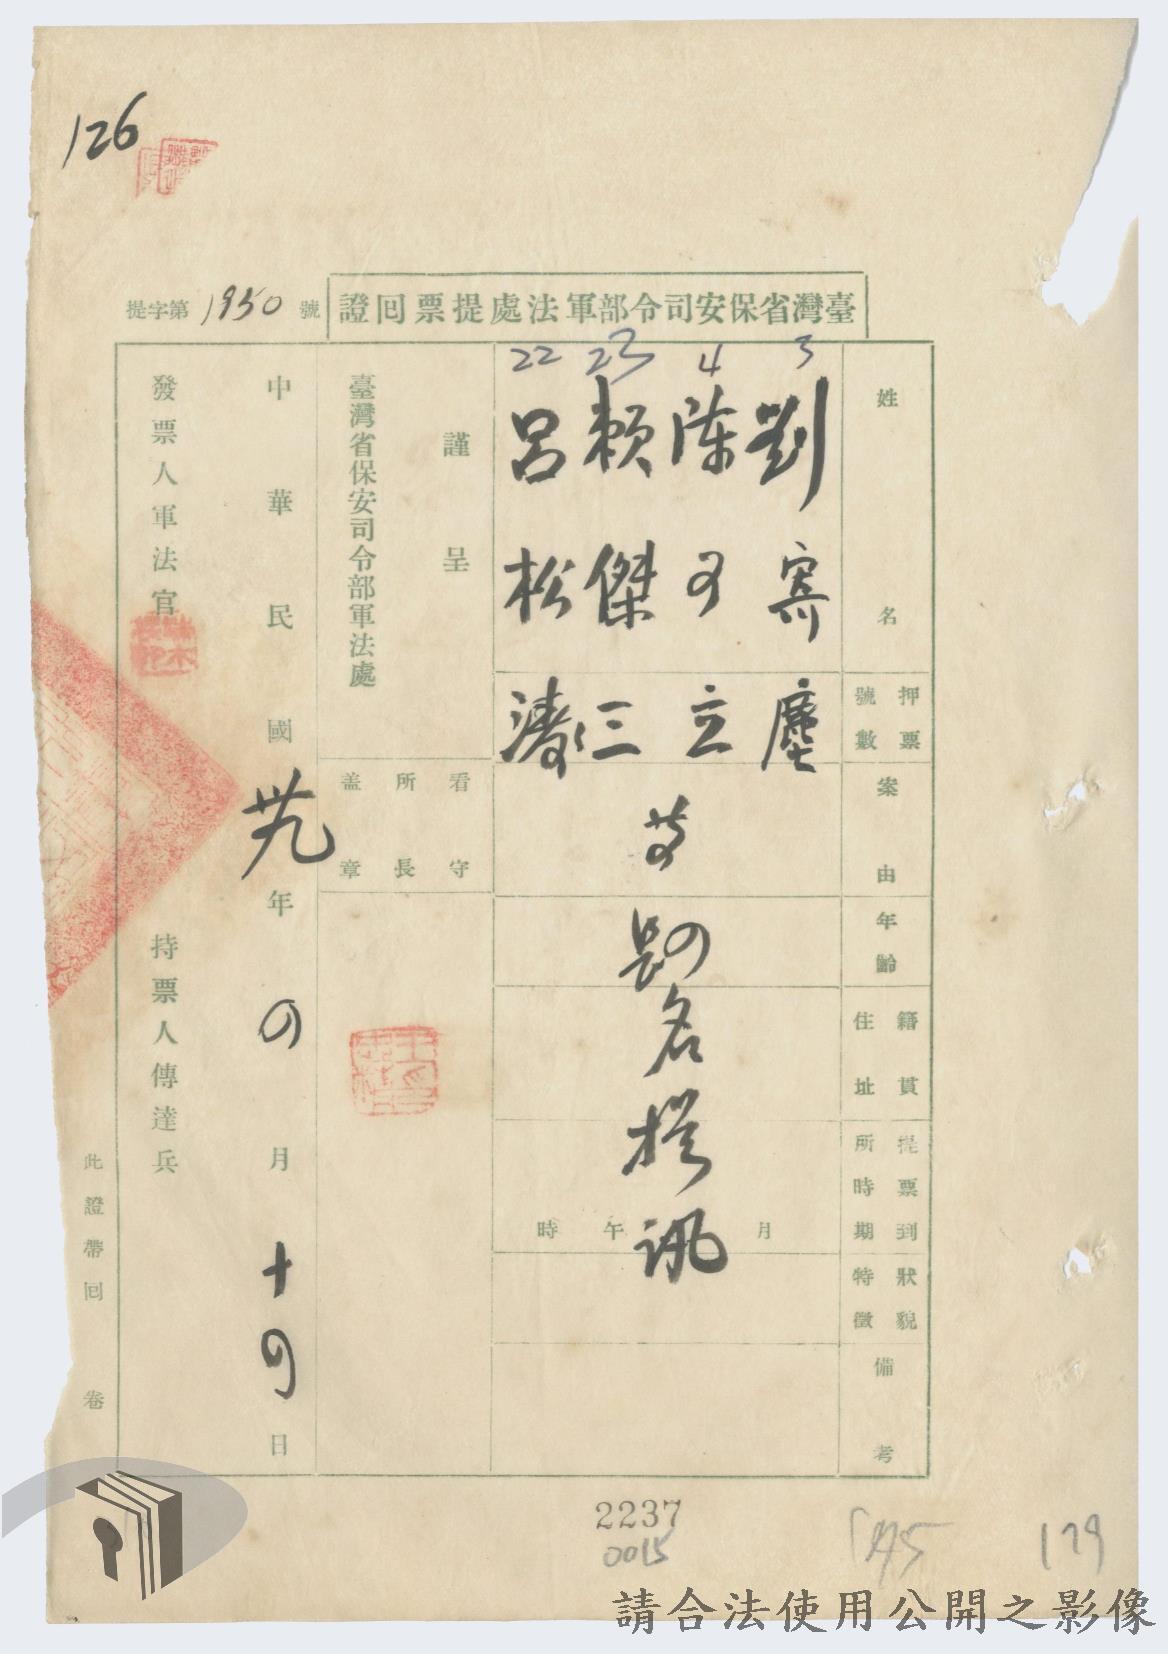 126
臺灣省保安司令部軍法處提票回證
提字第1950號
姓名
押票號數
案由
年齡
籍貫住址
提票到所時期
狀貌特徵
備考
3
劉寄塵
4
陳可立
23
賴傑三
22
呂松濤
等
四名提訊
月
午
時
謹呈
臺灣省保安司令部軍法處
看守所長蓋章
中華民國卅九年四月十四日
發票人軍法官
持票人傳達兵
此證帶回
卷
2237
0015
179
請合法使用公開之影像